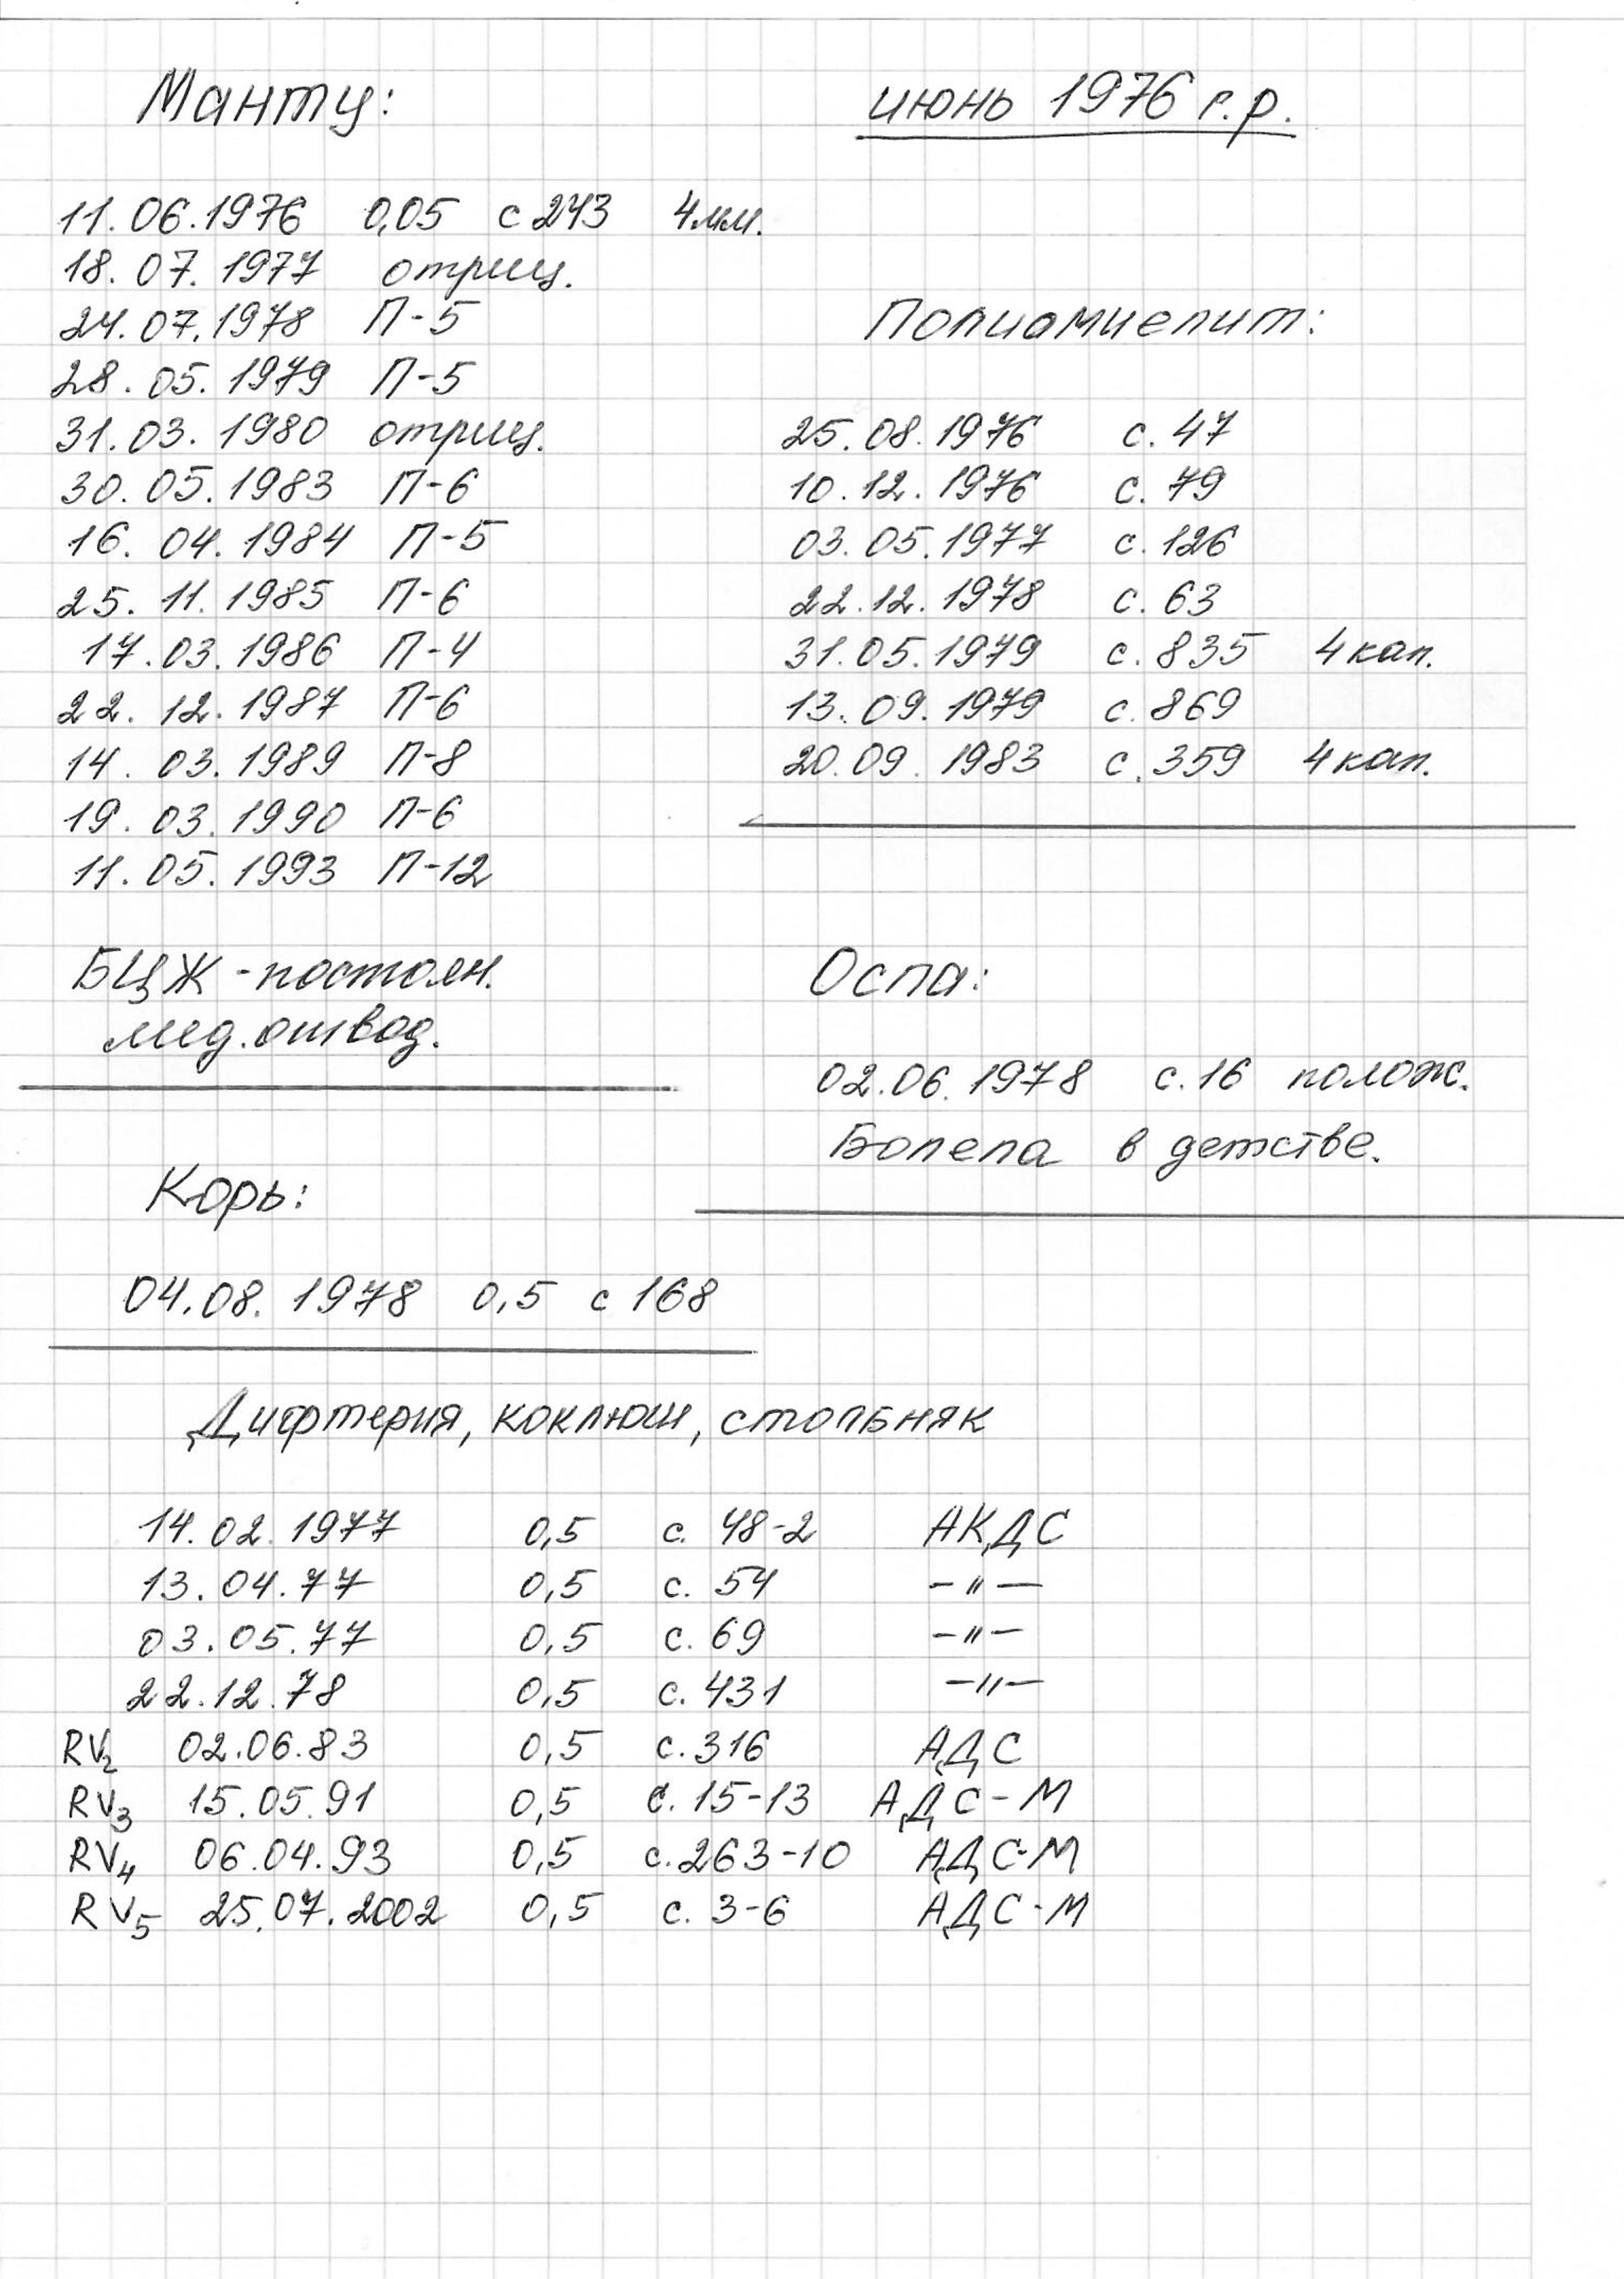 Манту:
июнь 1976 г.р.
11.06.1976 0,05 с 243 4мм.
18.07.1977 отриц.
24.07.1978 П-5
28.05.1979 П-5
31.03.1980 отриц.
30.05.1983 П-6
16.04.1984 П-5
25.11.1985 П-6
17.03.1986 П-4
22.12.1987 П-6
14.03.1989 П-8
19.03.1990 П-6
11.05.1993 П-12
БЦЖ - постоян.
мед. отвод.
Полиомиелит:
25.08.1976 с. 47
10.12.1976 с. 79
03.05.1977 с. 126
22.12.1978 с. 63
31.05.1979 с. 835 4 кап.
13.09.1979 с. 869
20.09.1983 с. 359 4 кап.
Оспа:
02.06.1978 с. 16 полож.
Болела в детстве.
Корь:
04.08.1978 0,5 с 168
Дифтерия, коклюш, столбняк
14.02.1977 0,5 с. 48-2 АКДС
13.04.77 0,5 с. 54 -"-
03.05.77 0,5 с. 69 -"-
22.12.78 0,5 с. 431 -"-
RV2 02.06.83 0,5 с. 316 АДС
RV3 15.05.91 0,5 с. 15-13 АДС-М
RV4 06.04.93 0,5 с. 263-10 АДС-М
RV5 25.07.2002 0,5 с. 3-6 АДС-М